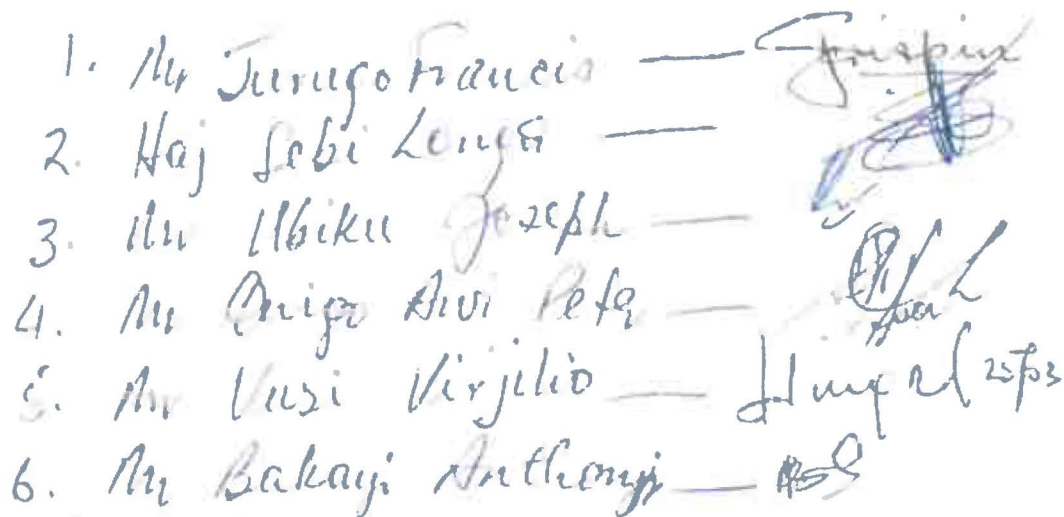 1. Mr Jurugo Francis —
2. Haj Sebi Lenga —
3. Mr Ubiku Jozeph —
4. Mr Onigo Avi Peta —
5. Mr Vuzi Virjilio —
6. Mr Bakayi Anthony —